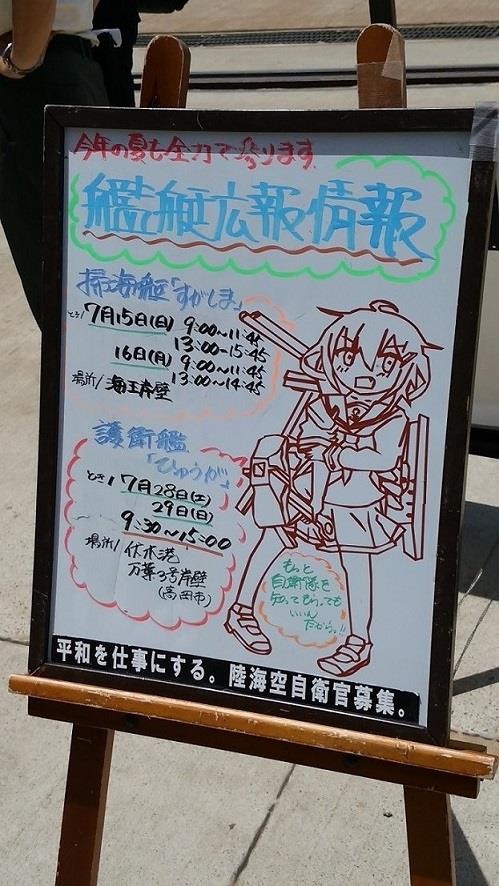 今年の夏も全力で参ります
艦艇広報情報
掃海艇「すがしま」
とき/ 7月15日(日) 9:00~11:45
13:00-15:45
16日(月) 9:00~11:45
13:00~14:45
場所/ 海王岸壁
護衛艦
「ひゅうが」
とき/ 7月28日(土)
29日(日)
9:30~15:00
場所/ 伏木港
万葉3号岸壁
(高岡市)
もっと
自衛隊を
知ってもらっても
いいん
だから。!!
平和を仕事にする。陸海空自衛官募集。